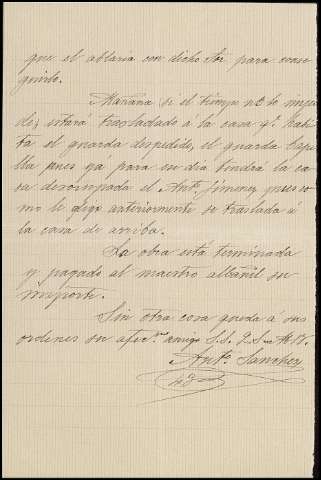 que el ablaria con dicho Sor para conse
guirlo.
Mañana si el tiempo no lo impi
de, estará trasladado á la casa q.e habi
ta el guarda despedido, el guarda Cape
lla pues ya para ese dia tendrá la ca
sa desocupada el Ant.o Jimenez pues co
mo le digo anteriormente se traslada á
la casa de arriba.
La obra está terminada
y pagado al maestro albañil su
importe.
Sin otra cosa queda á sus
ordenes su afec.mo amigo S.S. Q.S.M.B.
Ant.o Sanchez